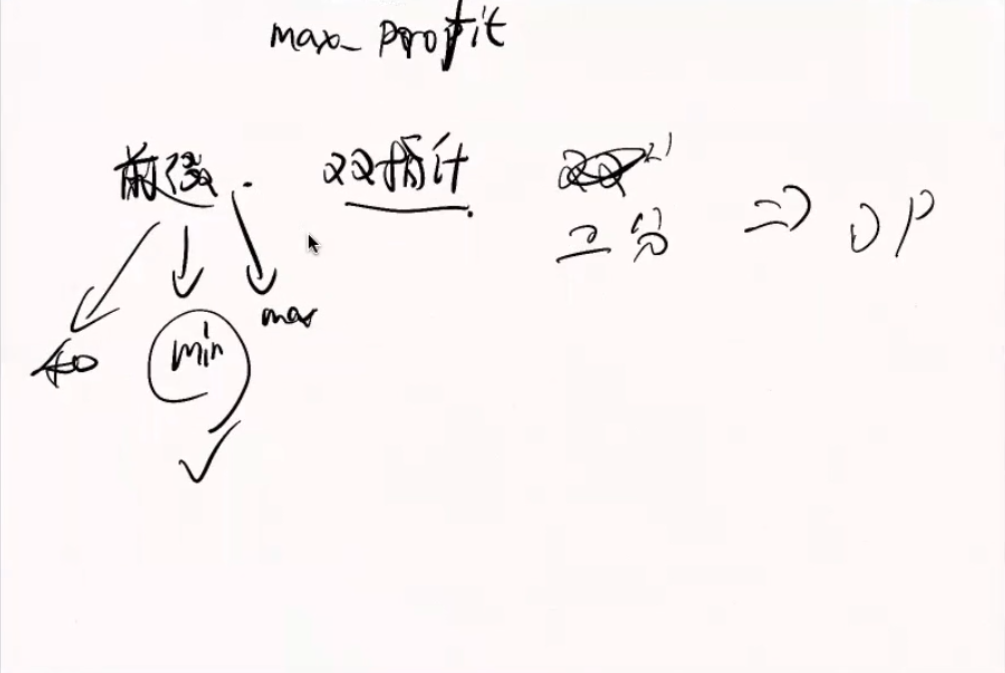 max_profit
前缀. 双指针
二分 => DP
和 min max